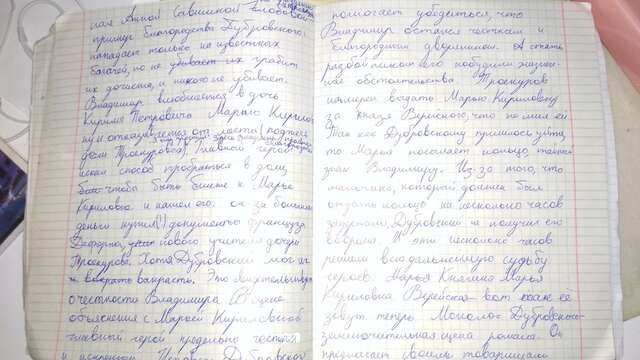 ная Анной Савишной
пример благородства Дубровского:
нападает только на известных
богачей, но не убивает их, грабит
их дочиста, и никого не убивает.
Владимир влюбляется в дочь
Кирилла Петровича Марью Кирилов-
ну и отказывается от мести
дом Троекурова). Главный герой
искал способ пробраться в дом,
чтобы быть ближе к Марье
Кириловне и нашел его: он за большие
деньги купил(!) документы француза
Дефоржа, нового учителя
Троекурова. Хотя Дубровский мог их
и
о честности Владимира. В сцене
объяснения с Марьей Кириловной
главный герой предельно честен
и искренен.
помогает убедиться, что
Владимир остался честным и
благородным дворянином. А стать
разбойником его побудили жизнен-
ные обстоятельства. Троекуров
намерен выдать Марью Кириловну
за князя Верейского, что не мил ей.
Так как Дубровскому пришлось уйти,
то Марья посылает кольцо,
Владимиру. Из-за того, что
мальчика, который должен был
отдать кольцо на несколько часов
задержали, Дубровский не получил его
вовремя. И эти несколько часов
решили всю дальнейшую судьбу
героев. Марья Княгиня Марья
Кириловна Верейская - вот как её
зовут теперь. Монолог Дубровского -
заключительная сцена романа. Он
предлагает своим товарищам